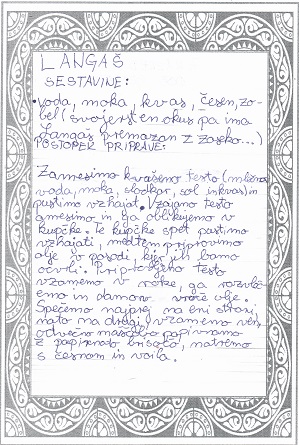 LANGAŠ
SESTAVINE:
• voda, moka, kvas, česen, zo-
bel (svojersten okus pa ima
Langaš premazan z zasko...)
POSTOPEK PRIPRAVE:
Zamesimo kvašeno testo (mlačna
voda, moka, sladkor, sol in kvas) in
pustimo vzhajat. Vzajano testo
umesimo in ga oblikujemo v
kupčke. Te kupčke spet pustimo
vzhajati, medtem pripravimo
olje v posodi, kjer jih bomo
ocvrli. Pripravljeno testo
vzamemo v roke, ga razvleč-
emo in damo v vroče olje.
Spečemo najprej na eni strani,
nato na drugi, vzamemo ven,
odvečno maščobo popivnamo
s papirnato brisačo, natremo
s česnom in voila.